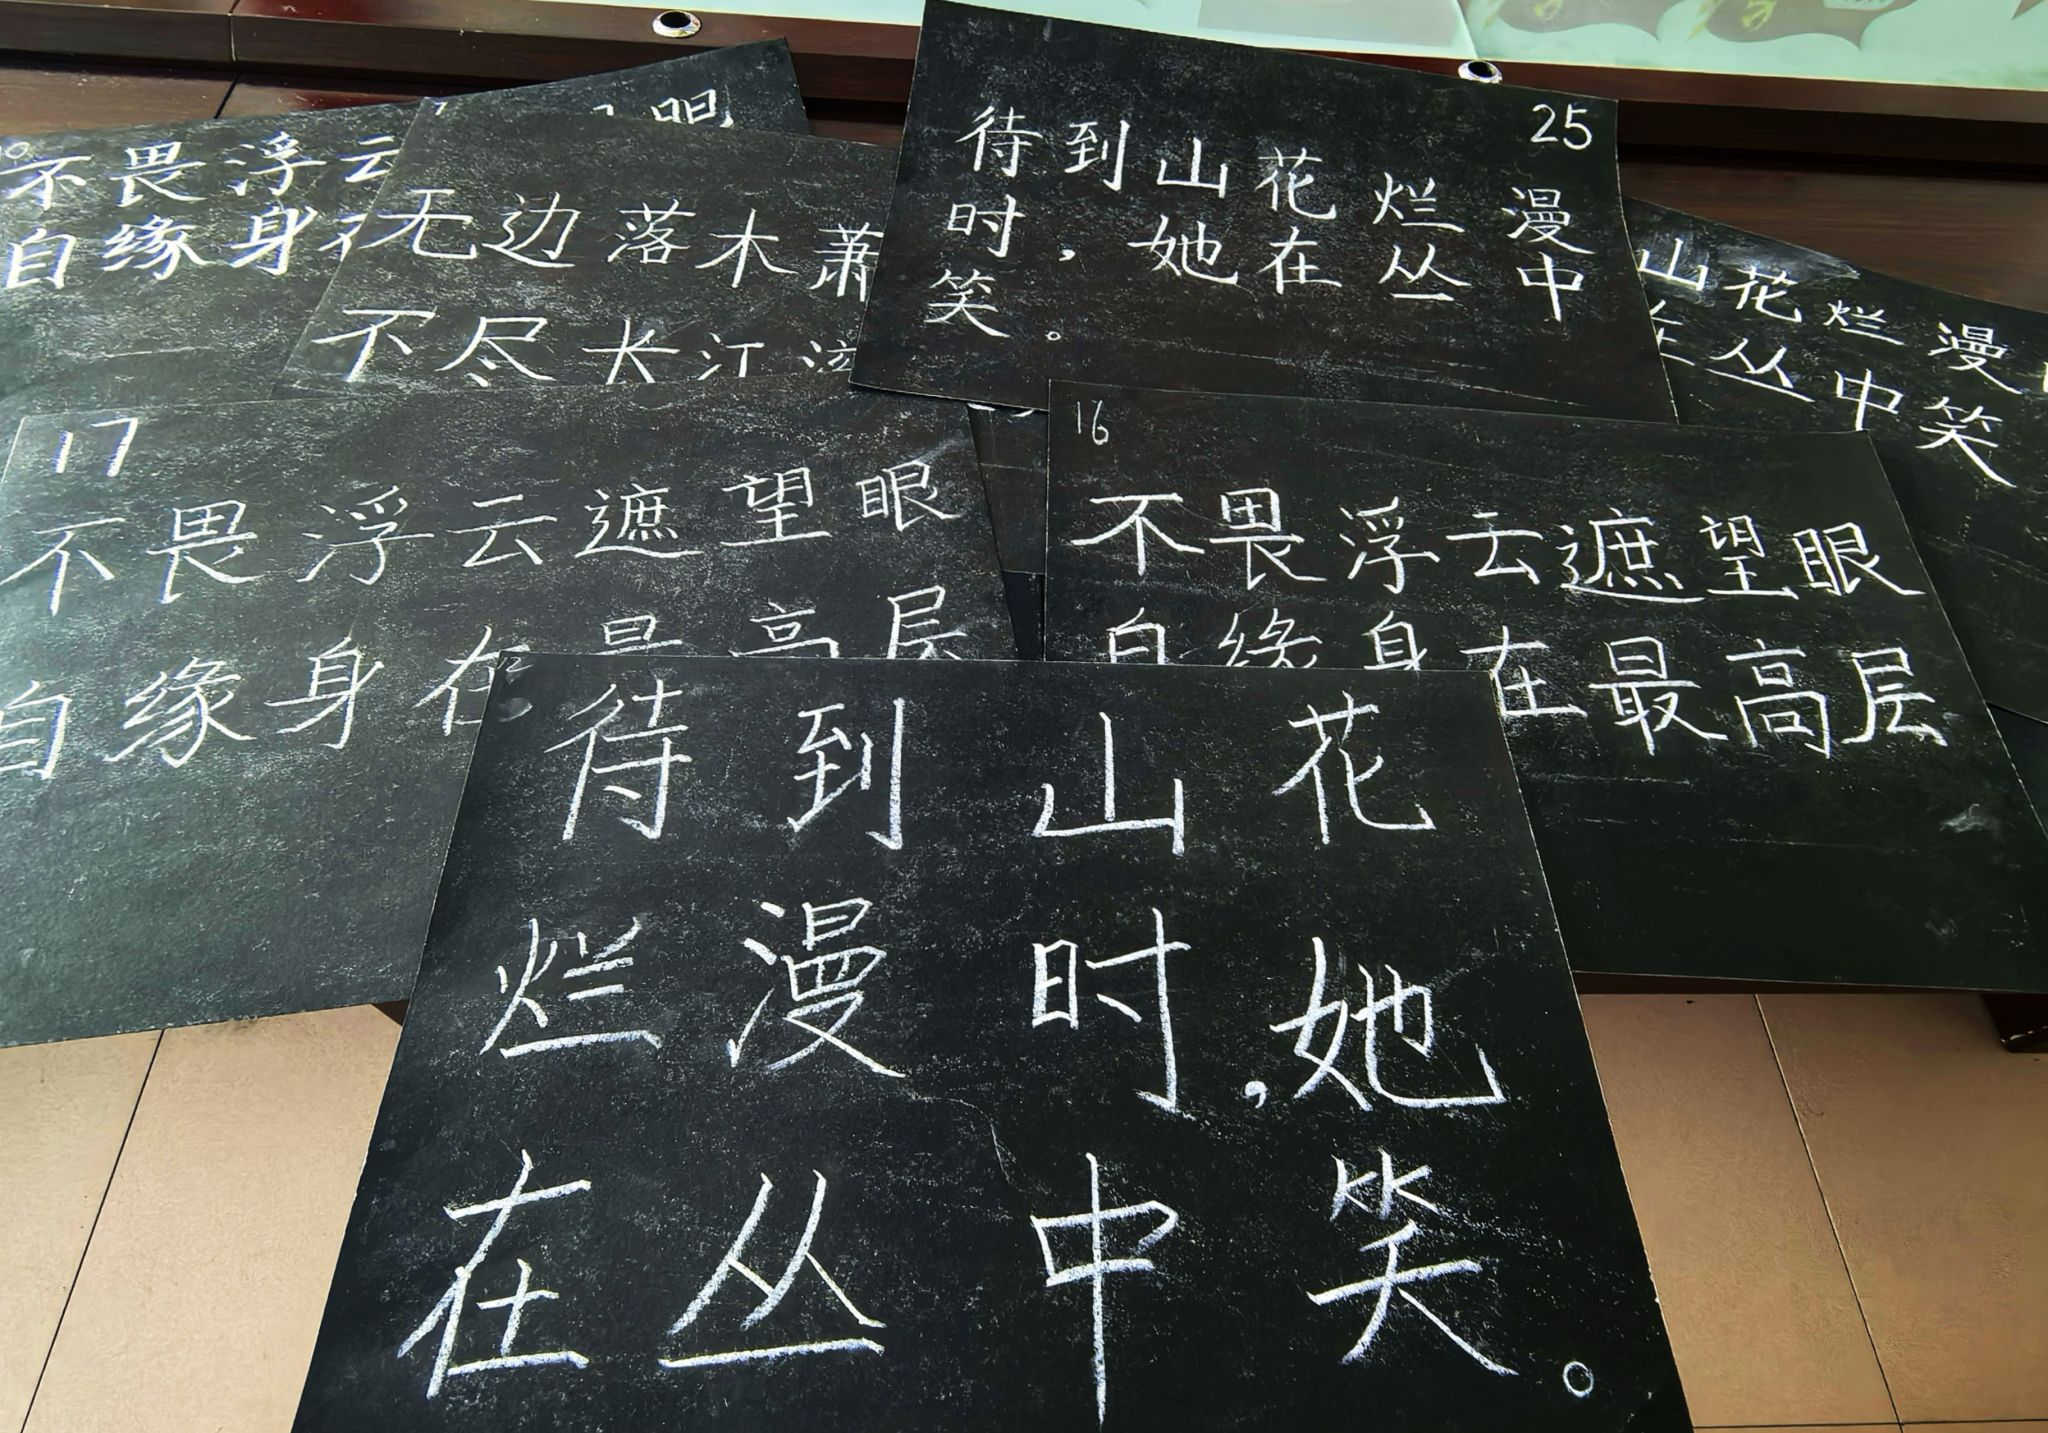 眼
不畏浮云
自缘身
无边落木萧
不尽长江流
25
待到山花烂漫
时，她在丛中
笑。
山花烂漫
在丛中笑
17
不畏浮云遮望眼
自缘身在最高层
16
不畏浮云遮望眼
自缘身在最高层
12
待到山花
烂漫时，她
在丛中笑。